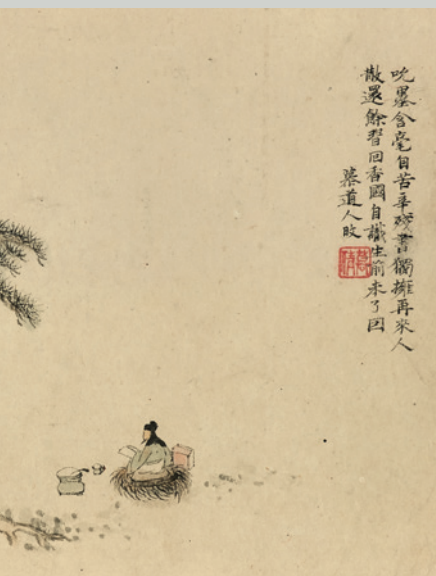 吮墨含毫自苦辛殘書獨擁再來人
散還餘習回香國自識生前未了因
慕道人畋